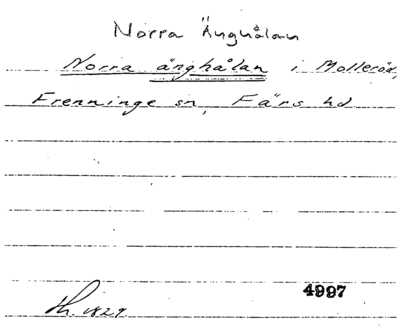 Norra Änghålan
Norra änghålan i Molleröd,
Frenninge sn, Färs hd
4997
1829